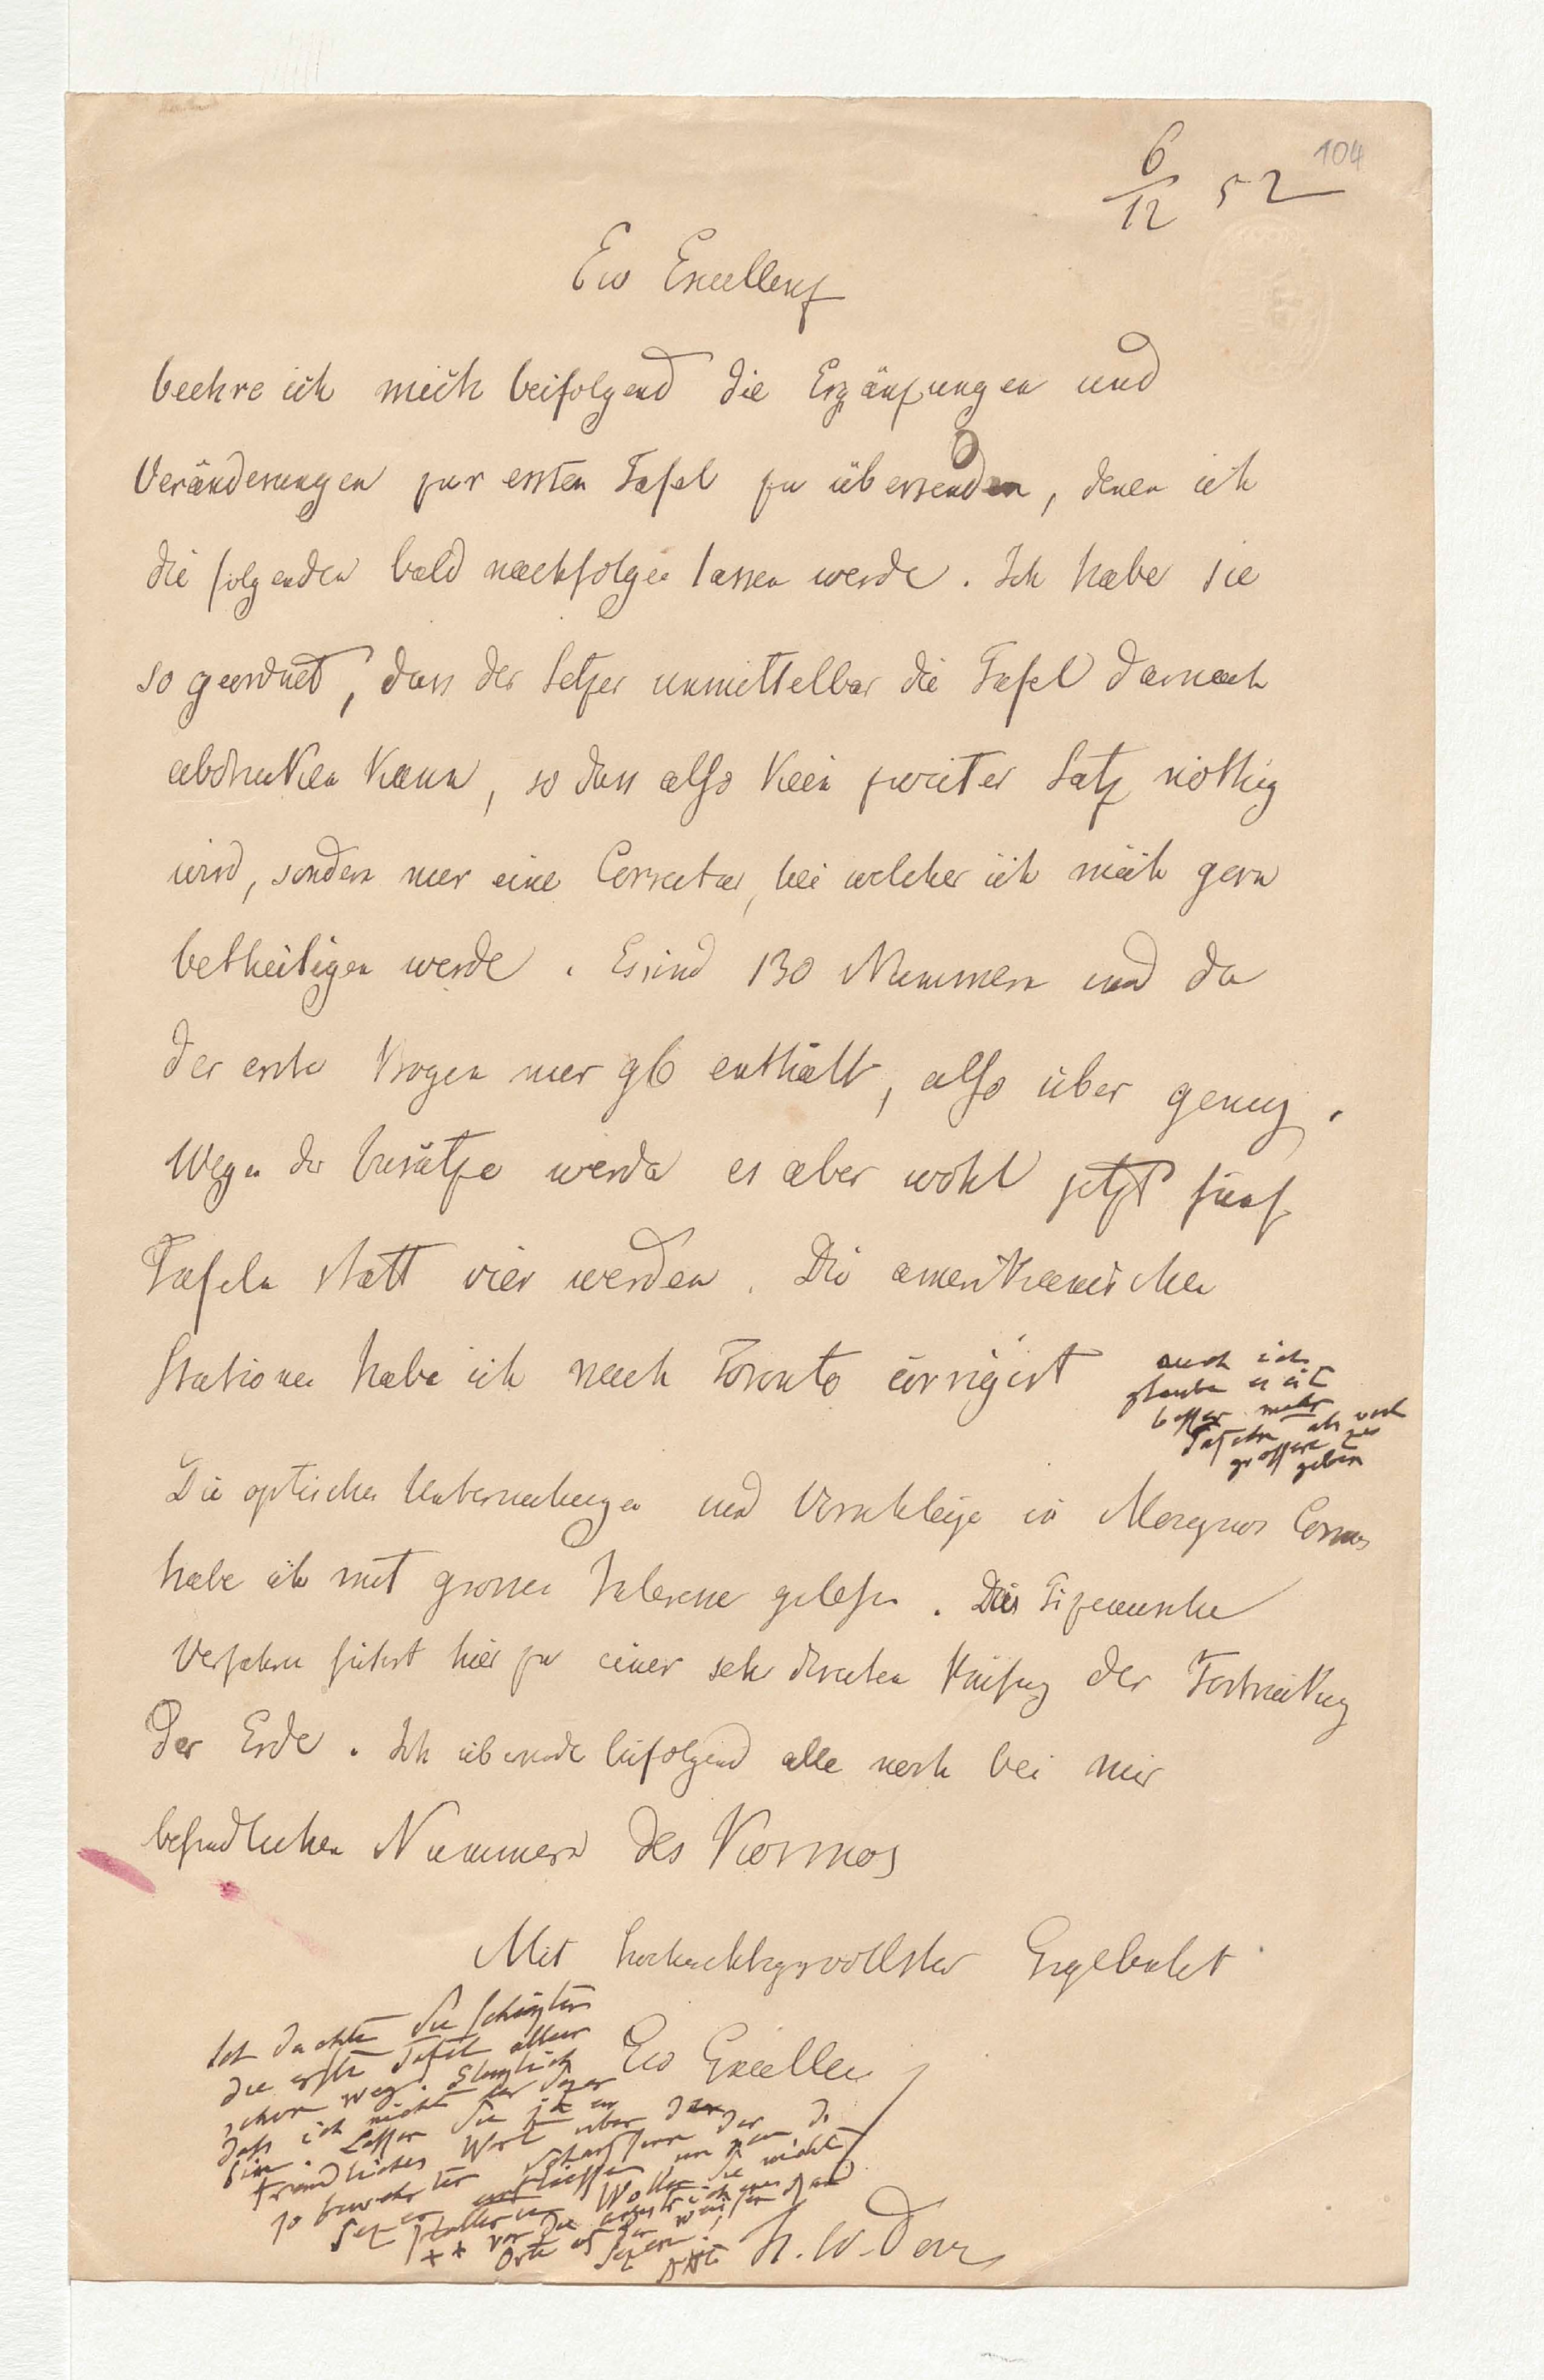 104
6/12 52
Ew Excellenz
beehre ich mich beifolgend die Ergänzungen und
Veränderungen zur ersten Tafel zu übersenden, denen ich
die folgenden bald nachfolgen lassen werde. Ich habe sie
so geordnet, dass der Setzer unmittelbar die Tafel darnach
abdrucken kann, so dass also kein zweiter Satz nöthig
wird, sondern nur eine Correctur, bei welcher ich mich gern
betheiligen werde. Es sind 130 Nummern und da
der erste Bogen nur 96 enthält, also über genug.
Wegen der Zusätze werden es aber wohl jetzt fünf
Tafeln statt vier werden. Die amerikanischen
Stationen habe ich nach Toronto corrigirt
auch ich
glaube es ist
besser mehr
Tafeln als noch
grössere zu
geben
Die optischen Untersuchungen und Vorschläge in Moignos Cosmos
habe ich mit grossem Interesse gelesen. Das
Verfahren führt hier zu einer sehr directen Prüfung der
der Erde. Ich übersende beifolgend alle noch bei mir
befindlichen Nummern des Kosmos
Mit hochachtungsvollster Ergebenheit
Ich dachte Sie schickten
die erste Tafel allein
schon weg.
dass ich nicht der Setzer
bin. Lassen Sie ja ein
freundliches Wort über den
so bewährten Scharfsinn der
Setzer einfliessen
Wollen Sie nicht
** vor die
Orte
Setzen!
AHt
Ew Excellenz
H. W. Dove